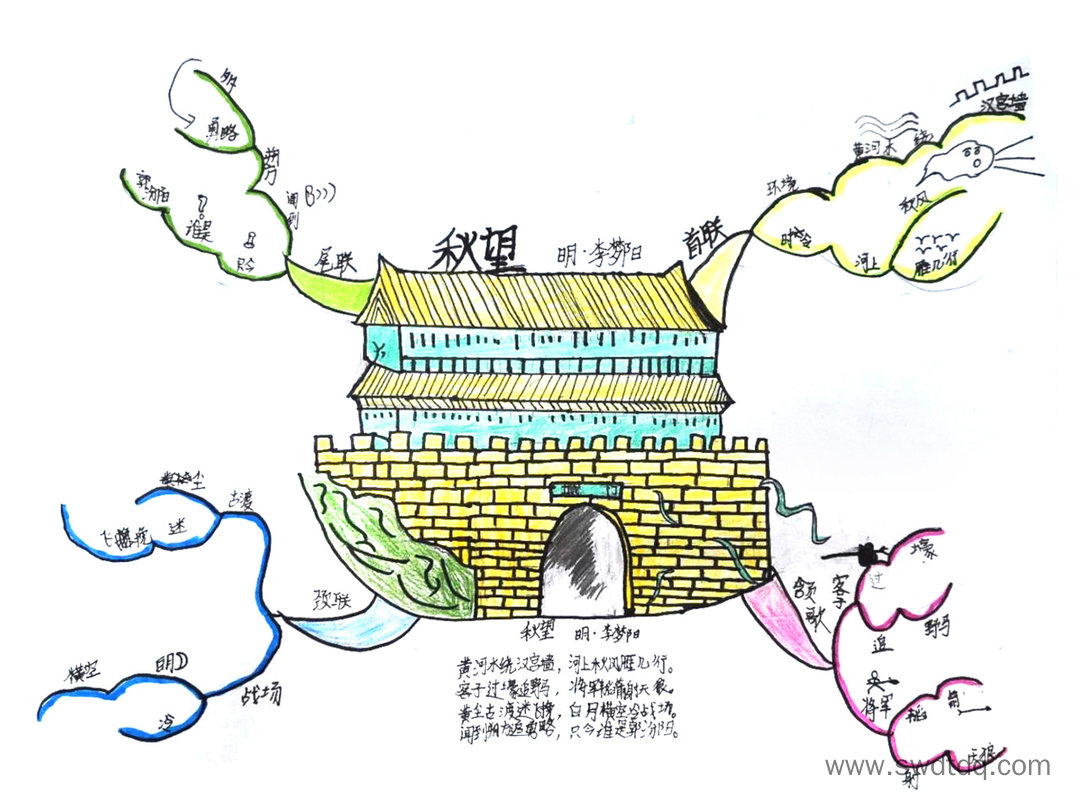 秋望
明·李梦阳
首联
环境
黄河水
绕
汉宫墙
时令
河上
秋风
雁几行
颔联
客子
过
壕
追
野马
将军
韬
箭
射
天狼
颈联
古渡
黄尘
迷
飞挽
战场
明
横空
冷
尾联
闻到
朔方
勇略
只今
谁是
郭汾阳
秋望 明·李梦阳
黄河水绕汉宫墙，河上秋风雁几行。
客子过壕追野马，将军韬箭射天狼。
黄尘古渡迷飞挽，白月横空冷战场。
闻到朔方勇略，只今谁是郭汾阳。
www.swdtdq.com